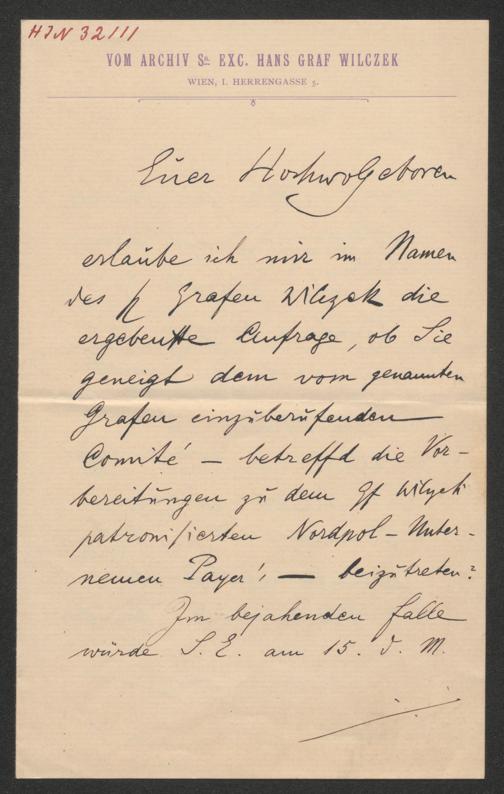 HIN 32111
VOM ARCHIV Sr. EXC. HANS GRAF WILCZEK
WIEN, I. HERRENGASSE 5.
Euer Hochwolgeboren
erlaube ich mir im Namen
des H Grafen Wilczek die
ergebenste Anfrage, ob Sie
geneigt dem vom genannten
Grafen einzuberufenden
Comité – betreffd die Vor-
bereitungen zu dem Gf Wilczek
patronisierten Nordpol-Unter-
nemen Payer's, — beizutreten?
Im bejahenden Falle
würde S. E. am 15. d. M.